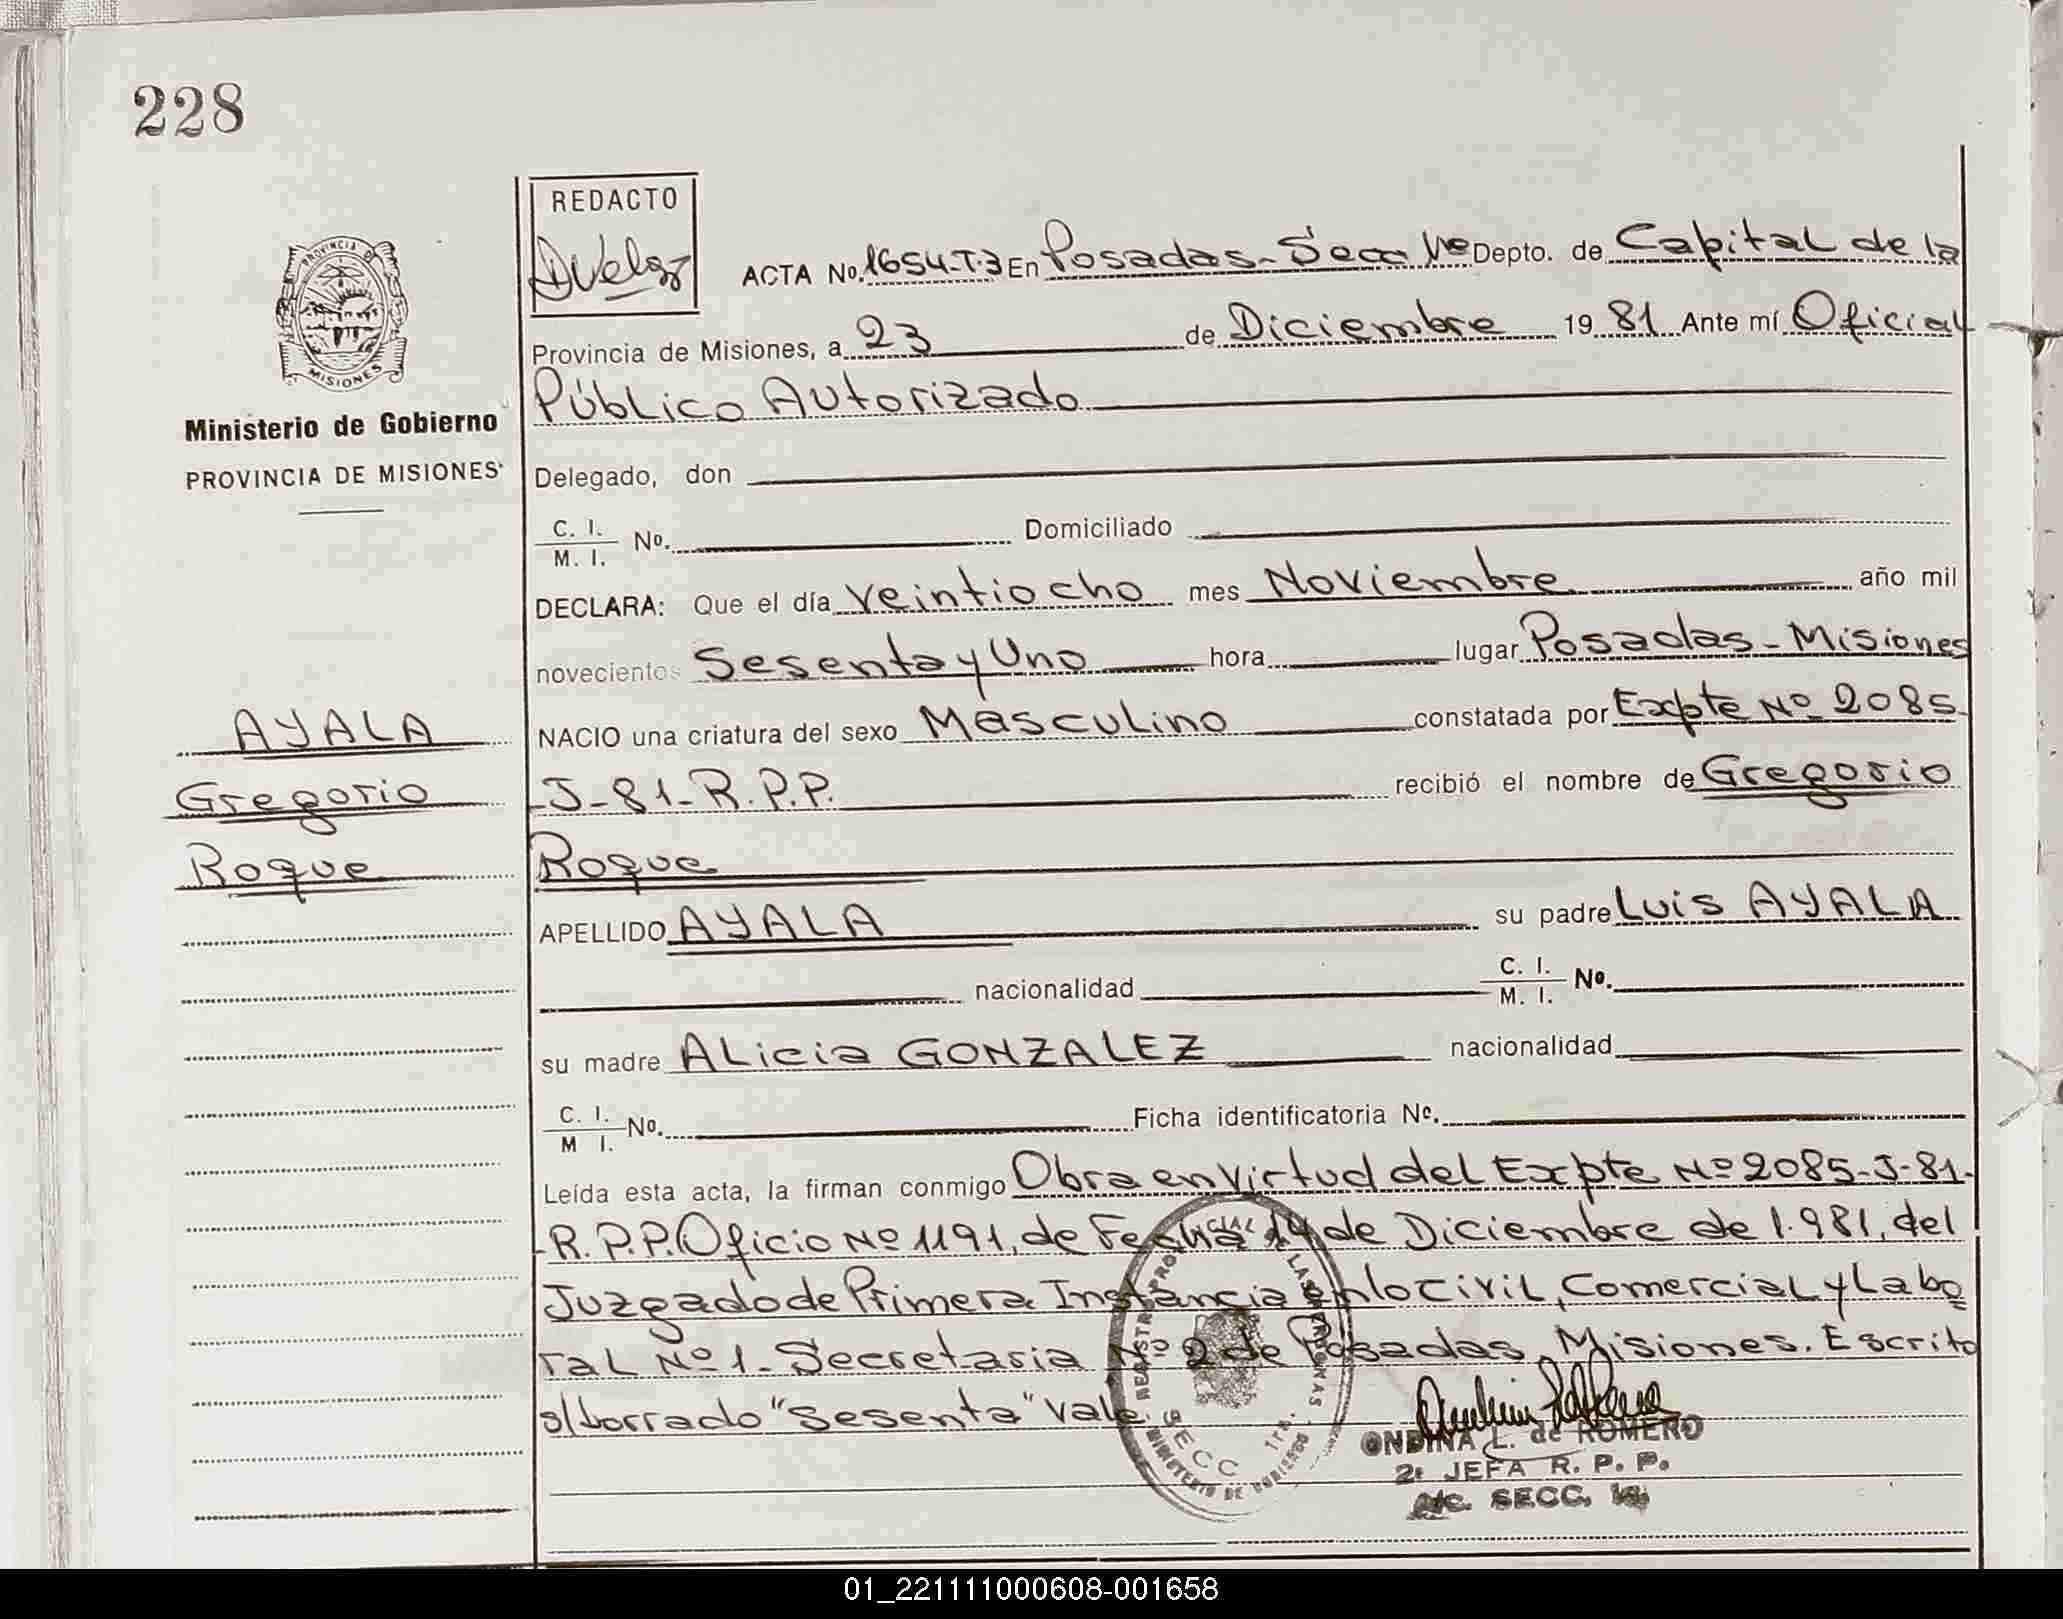 228
REDACTO
PROVINCIA DE
MISIONES
Ministerio de Gobierno
PROVINCIA DE MISIONES
ACTA No. 1654-T-3 En Posadas-Secc 1ra Depto. de Capital de la
Provincia de Misiones, a 23 de Diciembre 19 81 Ante mí Oficial
Público Autorizado
Delegado, don
C. I.
M. I. No. Domiciliado
DECLARA: Que el día veintiocho mes Noviembre año mil
novecientos Sesenta y Uno hora lugar Posadas-Misiones
AYALA
Gregorio
Roque
NACIO una criatura del sexo Masculino constatada por Expte No 2085-
J-81-R.P.P. recibió el nombre de Gregorio
Roque
APELLIDO AYALA su padre Luis AYALA
nacionalidad C. I.
M. I. No.
su madre ALicia GONZALEZ nacionalidad
C. I.
M I. No. Ficha identificatoria No.
Leída esta acta, la firman conmigo Obra en virtud del Expte No 2085-J-81-
R.P.P. Oficio No 1191, de Fecha 14 de Diciembre de 1.981, del
Juzgado de Primera Instancia en lo Civil, Comercial y Labo
ral No 1-Secretaria No 2 de Posadas, Misiones. Escrito
s/borrado "Sesenta" Vale
SECC 1ra.
MINISTERIO DE GOBIERNO
ONDINA L. de ROMERO
2a JEFA R. P. P.
A/C. SECC. 1a
01_221111000608-001658